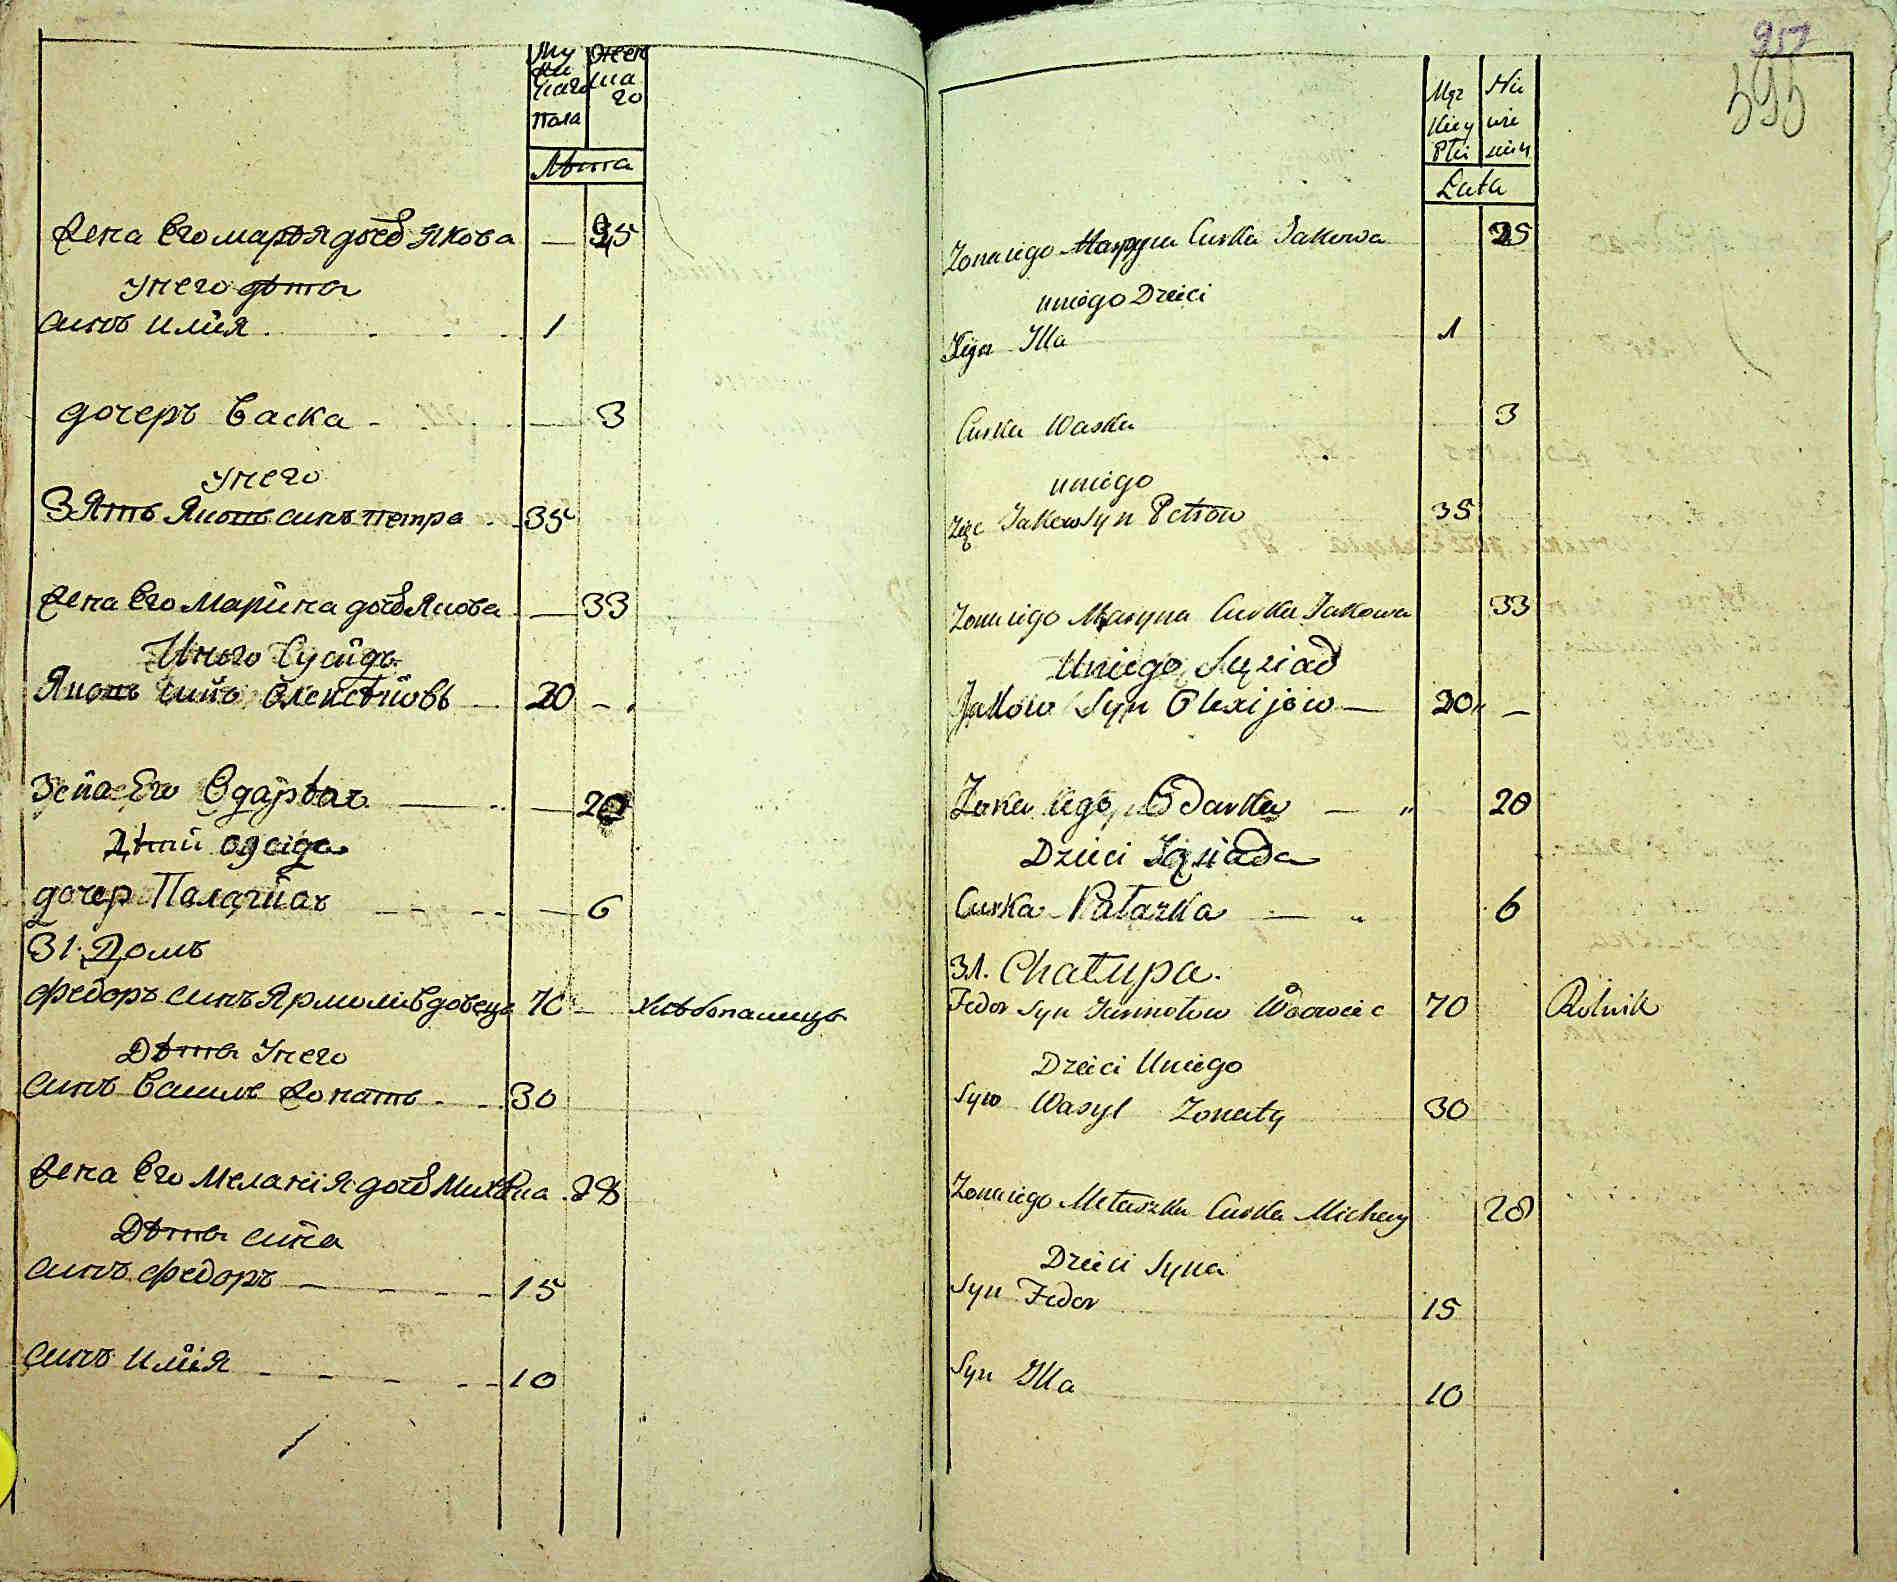 Му
жи
ска го
Пола
Жен
ска
го
Лѣта
Жена Его марѣя дочь Якова — 25
У него дѣти
Синъ илія 1
дочеръ Васка — 3
У него
Зять Яковъ синъ петра 35
Жена Его Марина дочь Якова — 33
У него Сусидъ
Яковъ Синъ Олексѣювъ 20 —
Жена Его Одарка — 20
Дѣти сусида
дочер — 6
31. Домъ
Федоръ синъ Ярмолив вдовецъ 70 — Хлѣбопашецъ
Дѣти У него
Синъ Василь Жонатъ 30
Жена Его Меланія дочь 28
Дѣти сина
Синъ Федоръ 15
Синъ илія 10
951
595
Męz
kiey
Płci
Nie
wie
ściey
Lata
Zona iego Maryna Curka Jakowa 25
uniego Dzieci
Syn Illa 1
Curka Waska 3
uniego
Zięc Jakow Syn Petrow 35
Zona iego Maryna Curka Jakowa 33
Uniego Sąsiad
Jakow Syn Olexijow — 20 „ —
Zona iego Odarka — „ 20
Dzieci Sąsiada
Curka Pałazka — „ 6
31. Chałupa.
Fedor Syn Wdowiec 70 Rolnik
Dzieci Uniego
Syn Wasyl Zonaty 30
Zona iego Melaszka Curka 28
Dzieci Syna
Syn Fedor 15
Syn Illa 10